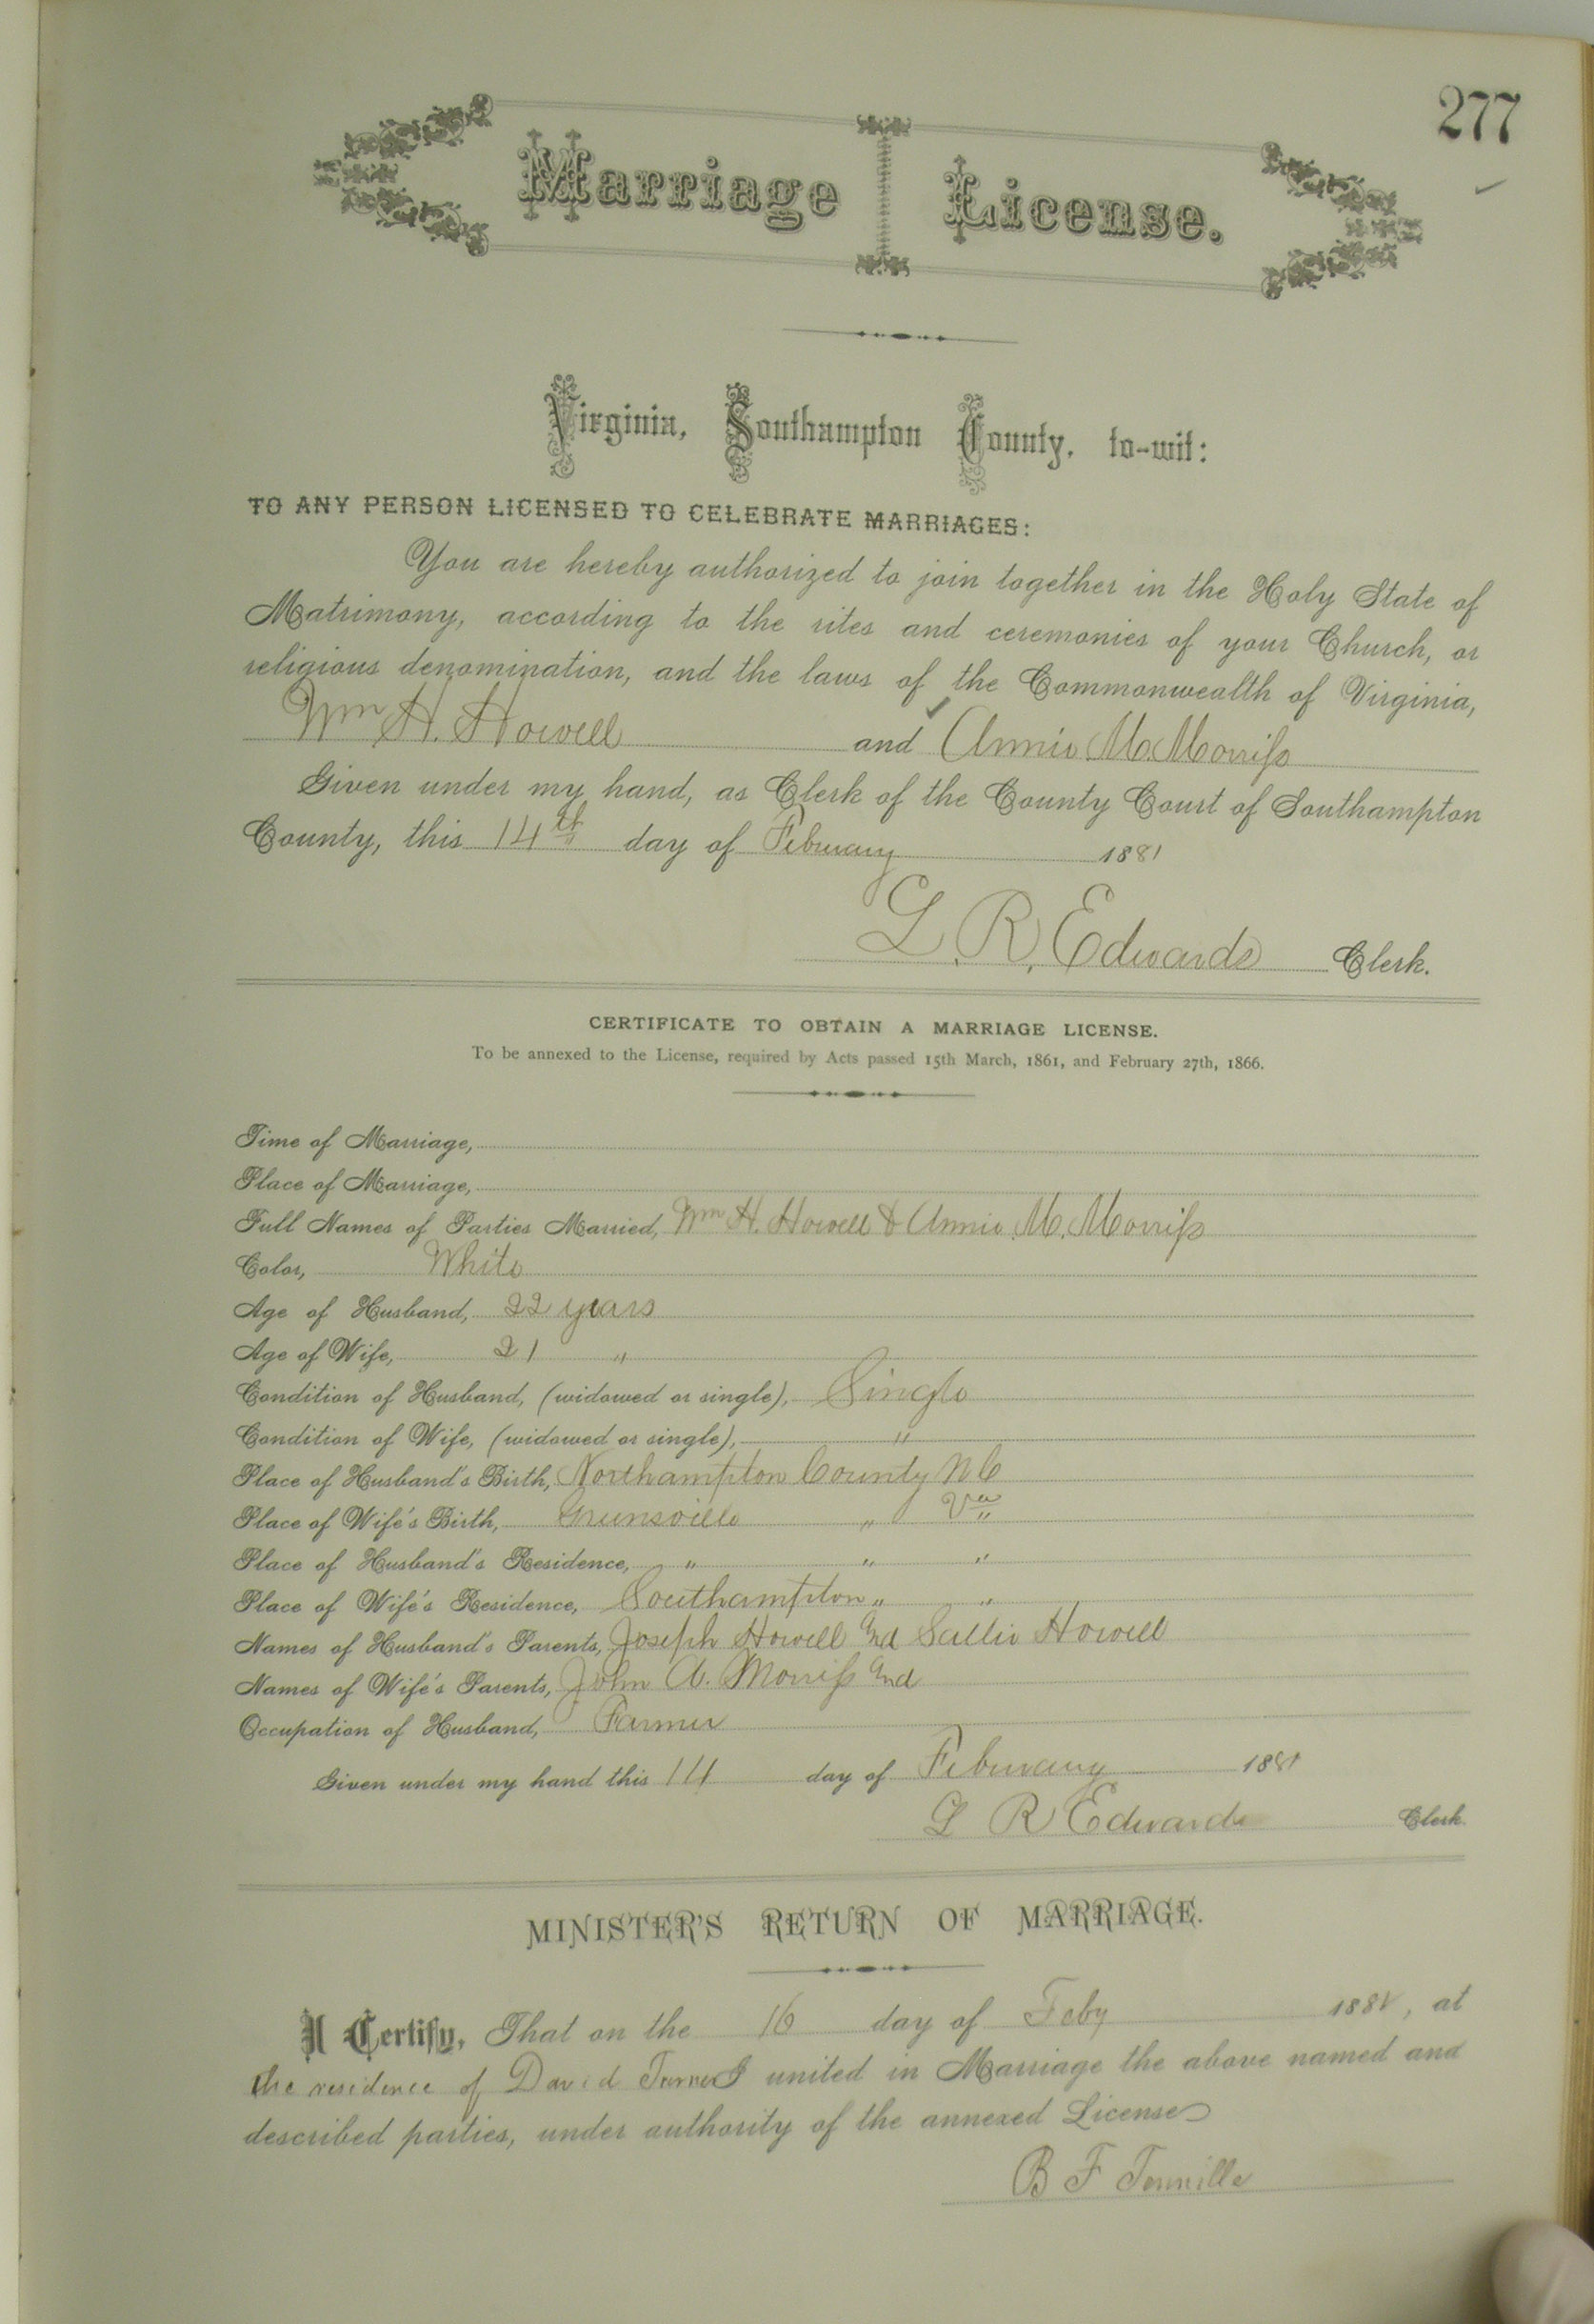 277
Marriage License.
Virginia, Southampton County, to-wit:
TO ANY PERSON LICENSED TO CELEBRATE MARRIAGES:
You are hereby authorized to join together in the Holy State of
Matrimony, according to the rites and ceremonies of your Church, or
religious denomination, and the laws of the Commonwealth of Virginia,
Wm H. Howell and Annie M. Morriss
Given under my hand, as Clerk of the County Court of Southampton
County, this 14th day of February 1881
L. R. Edwards Clerk.
CERTIFICATE TO OBTAIN A MARRIAGE LICENSE.
To be annexed to the License, required by Acts passed 15th March, 1861, and February 27th, 1866.
Time of Marriage,
Place of Marriage,
Full Names of Parties Married, Wm H. Howell & Annie M. Morriss
Color, White
Age of Husband, 22 years
Age of Wife, 21 "
Condition of Husband, (widowed or single), Single
Condition of Wife, (widowed or single), "
Place of Husband's Birth, Northampton County N C
Place of Wife's Birth, Greensville " Va
Place of Husband's Residence, " " "
Place of Wife's Residence, Southampton " "
Names of Husband's Parents, Joseph Howell and Sallie Howell
Names of Wife's Parents, John A. Morriss and
Occupation of Husband, Farmer
Given under my hand this 14 day of February 1881
L R Edwards Clerk.
MINISTER'S RETURN OF MARRIAGE.
I Certify, That on the 16 day of Feby 1881, at
the residence of David Turner I united in Marriage the above named and
described parties, under authority of the annexed License
B F